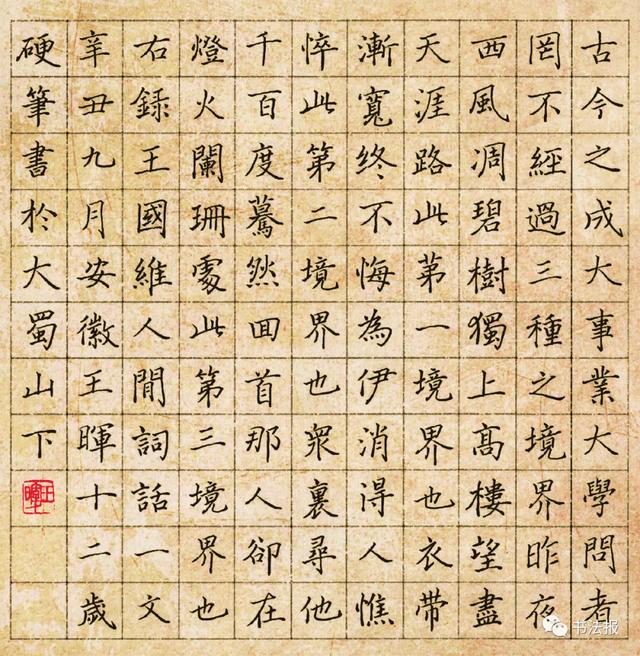 古今之成大事業大學問者
罔不經過三種之境界昨夜
西風凋碧樹獨上高樓望盡
天涯路此第一境界也衣帶
漸寬终不悔為伊消淂人憔
悴此第二境界也衆裏尋他
千百度驀然回首那人卻在
燈火闌珊處此第三境界也
右録王國維人間詞話一文
辛丑九月安徽王暉十二歲
硬筆書於大蜀山下
王暉
书法报